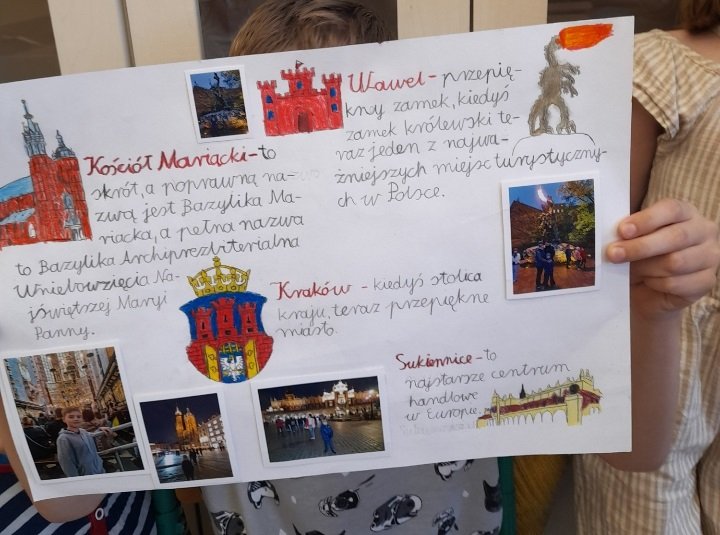 Wawel - przepię-
kny zamek, kiedyś
zamek królewski te-
raz jeden z najwa-
żniejszych miejsc turystyczny-
ch w Polsce.
Kościół Mariacki - to
skrót, a poprawną na-
zwą jest Bazylika Ma-
riacka, a pełna nazwa
to Bazylika Archiprezbiterialna
Wniebowzięcia Na-
jświętszej Maryi
Panny.
Kraków - kiedyś stolica
kraju, teraz przepiękne
miasto.
Sukiennice - to
najstarsze centrum
handlowe
w Europie.